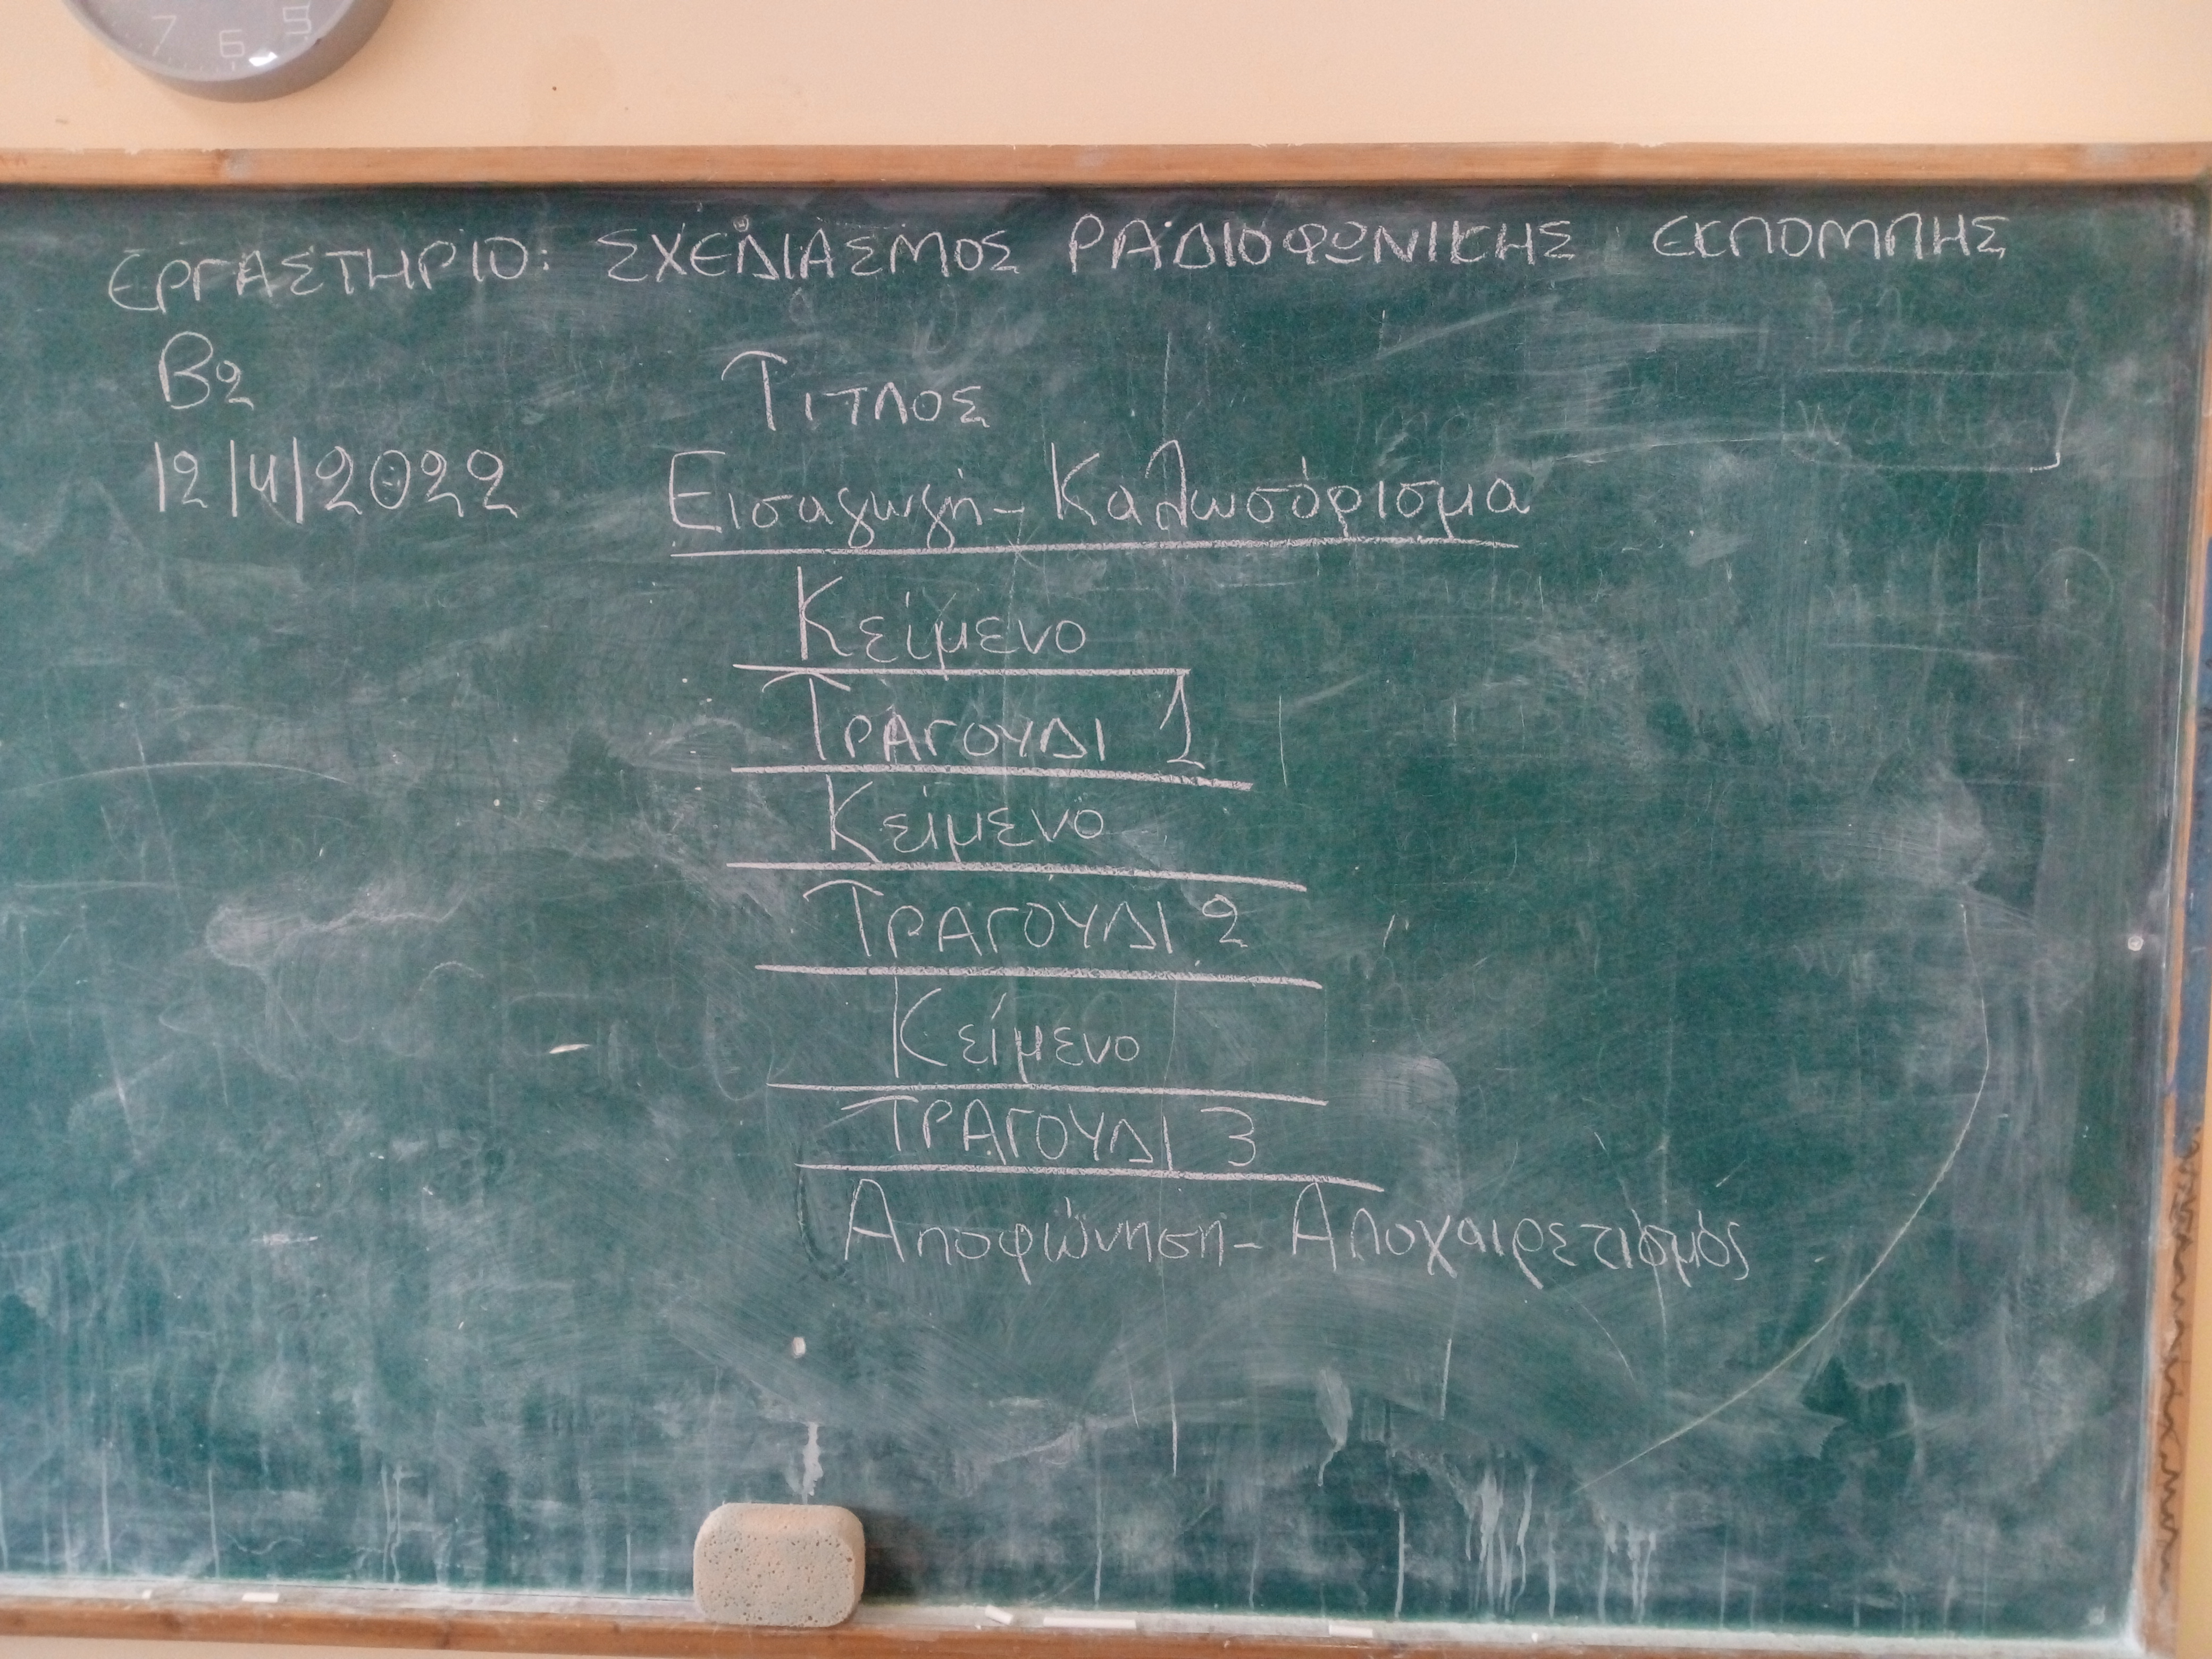 7 6 5
ΕΡΓΑΣΤΗΡΙΟ: ΣΧΕΔΙΑΣΜΟΣ ΡΑΔΙΟΦΩΝΙΚΗΣ ΕΚΠΟΜΠΗΣ
Β2
ΤΙΤΛΟΣ
12/4/2022
Εισαγωγή - Καλωσόρισμα
Κείμενο
ΤΡΑΓΟΥΔΙ 1
Κείμενο
ΤΡΑΓΟΥΔΙ 2
Κείμενο
ΤΡΑΓΟΥΔΙ 3
Αποφώνηση - Αποχαιρετισμός